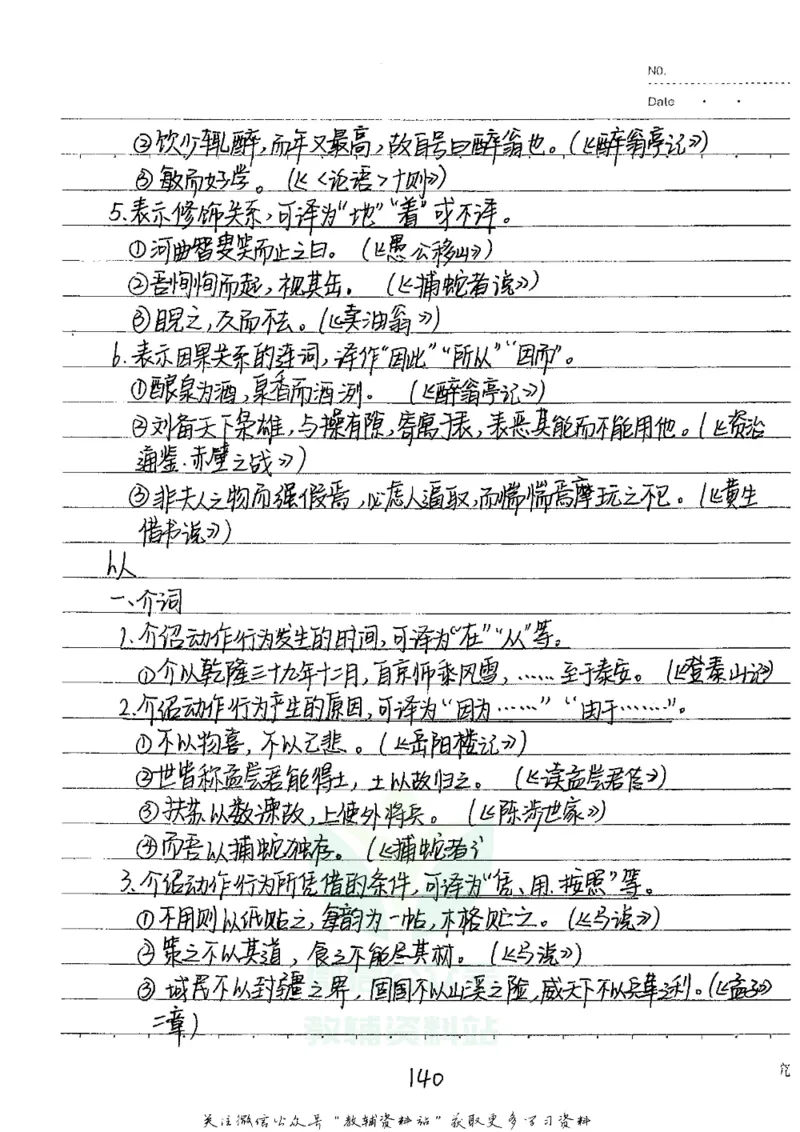 NO.
Date
②饮少辄醉,而年又最高,故自号曰醉翁也。(《醉翁亭记》)
③敏而好学。(《〈论语〉十则》)
5.表示修饰关系,可译为"地""着"或不译。
①河曲智叟笑而止之曰。(《愚公移山》)
②吾恂恂而起,视其缶。(《捕蛇者说》)
③睨之,久而不去。(《卖油翁》)
6.表示因果关系的连词,译作"因此""所以""因而"。
①酿泉为酒,泉香而酒洌。(《醉翁亭记》)
②刘备天下枭雄,与操有隙,寄寓于表,表恶其能而不能用他。(《资治
通鉴·赤壁之战》)
③非夫人之物而强假焉,必虑人逼取,而惴惴焉摩玩之不已。(《黄生
借书说》)
以
一、介词
1.介绍动作行为发生的时间,可译为"在""从"等。
①介以乾隆三十九年十二月,自京师乘风雪,……至于泰安。(《登泰山记》)
2.介绍动作行为产生的原因,可译为"因为……""由于……"。
①不以物喜,不以己悲。(《岳阳楼记》)
②世皆称孟尝君能得士,士以故归之。(《读孟尝君传》)
③扶苏以数谏故,上使外将兵。(《陈涉世家》)
④而吾以捕蛇独存。(《捕蛇者
3.介绍动作行为所凭借的条件,可译为"凭、用、按照"等。
①不用则以纸贴之,每韵为一帖,木格贮之。(《马说》)
②策之不以其道,食之不能尽其材。(《马说》)
③域民不以封疆之界,固国不以山溪之险,威天下不以兵革之利。(《孟子》
二章)
140
关注微信公众号"教辅资料站"获取更多学习资料
教辅资料站